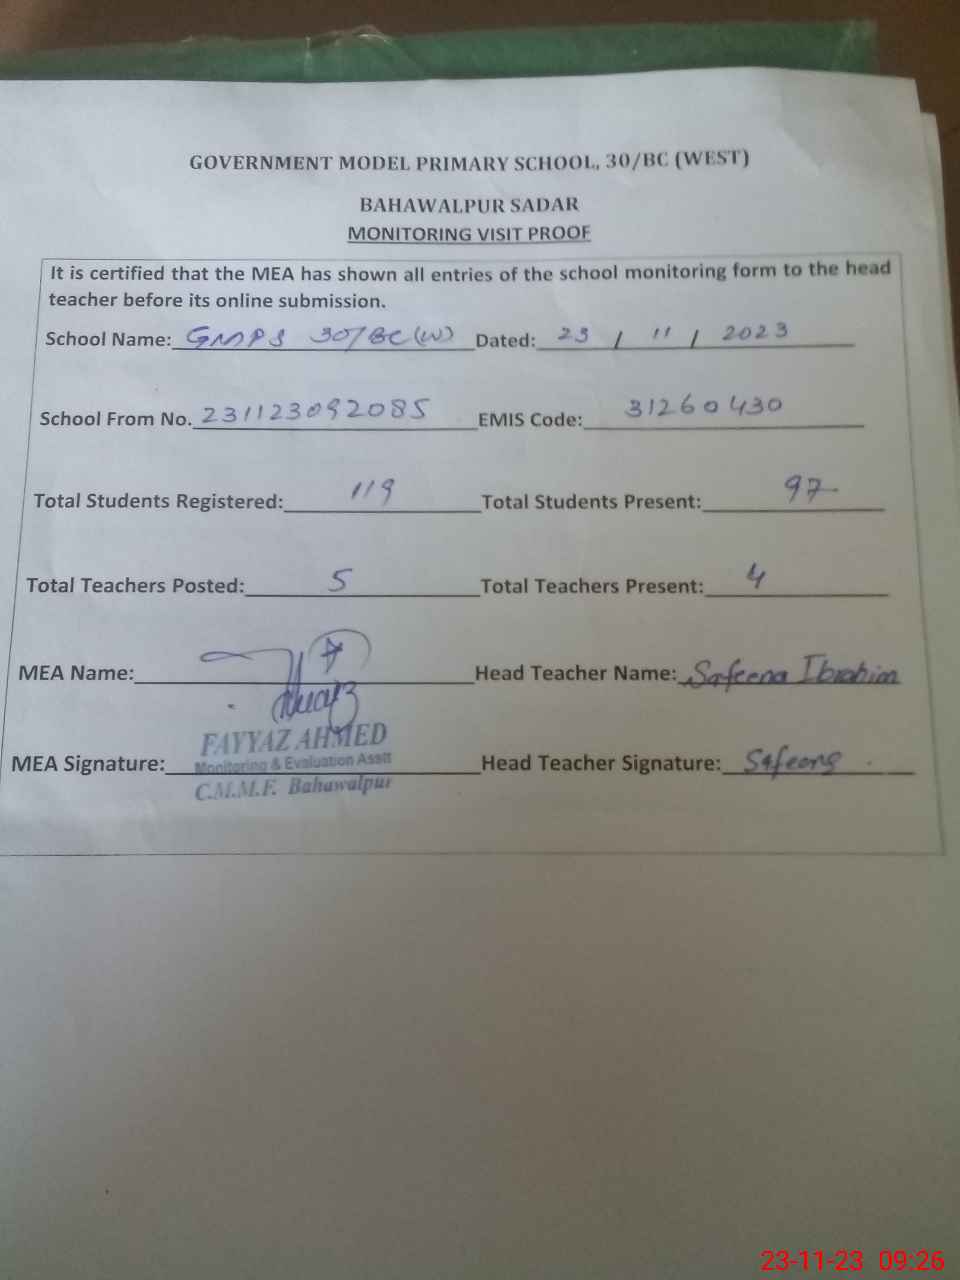 GOVERNMENT MODEL PRIMARY SCHOOL, 30/BC (WEST)
BAHAWALPUR SADAR
MONITORING VISIT PROOF
It is certified that the MEA has shown all entries of the school monitoring form to the head
teacher before its online submission.
School Name: GMPS 30/BC (W) Dated: 23 / 11 / 2023
School From No. 231123092085 EMIS Code: 31260430
Total Students Registered: 119 Total Students Present: 97
Total Teachers Posted: 5 Total Teachers Present: 4
MEA Name: Head Teacher Name: Safeena Ibrahim
FAYYAZ AHMED
MEA Signature: Monitoring & Evaluation Asstt Head Teacher Signature: Safeena
C.M.M.F. Bahawalpur
23-11-23 09:26